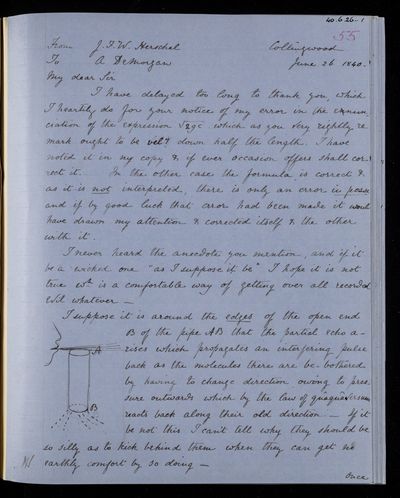 40.6.26-1
55
From J.F.W. Herschel Collingwood
To A DeMorgan June 26 1840.
My dear Sir
I have delayed too long to thank you, which
I heartily do for your notice of my error in the enun-
ciation of the expression √2gc which as you very rightly re
mark ought to be vel.y down half the length. I have
noted it in my copy & if ever occasion offers shall cor-
rect it. In the other case the formula is correct &
as it is not interpreted, there is only an error in posse
and if by good luck that error had been made it would
have drawn my attention & corrected itself & the other
with it.
I never heard the anecdote you mention, and if it
be a wicked one "as I suppose it be" I hope it is not
true wh. is a comfortable way of getting over all recorded
Evil whatever —
I suppose it is around the edges of the open end
B of the pipe AB that the partial echo a-
rises which propagates an interfering pulse
back as the molecules there are be-bothered
by having to change direction owing to pres
sure outwards which by the law of
reacts back along their old direction — If it
be not this I can't tell why they should be
so silly as to kick behind them when they can get no
earthly comfort by so doing —
Once
A
B